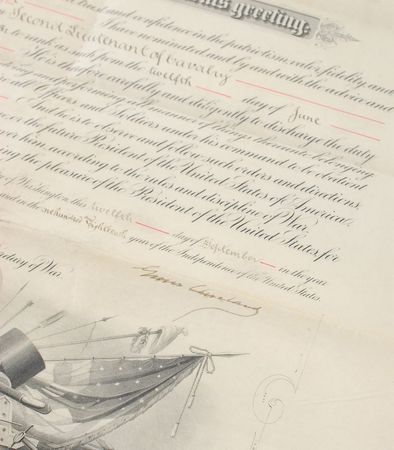 greeting:
trust and confidence in the patriotism, valor, fidelity and
I have nominated and by and with the advice and
Second Lieutenant of Cavalry
to rank as such from the twelfth day of June
He is therefore carefully and diligently to discharge the duty
by doing and performing all manner of things thereunto belonging.
Officers and Soldiers under his command to be obedient
And he is to observe and follow such orders and directions,
or the future President of the United States of America,
over him, according to the rules and discipline of War.
ing the pleasure of the President of the United States for
of Washington this twelfth day of September in the year
and in the one hundred and Eighteenth year of the Independence of the United States.
Grover Cleveland
retary of War.